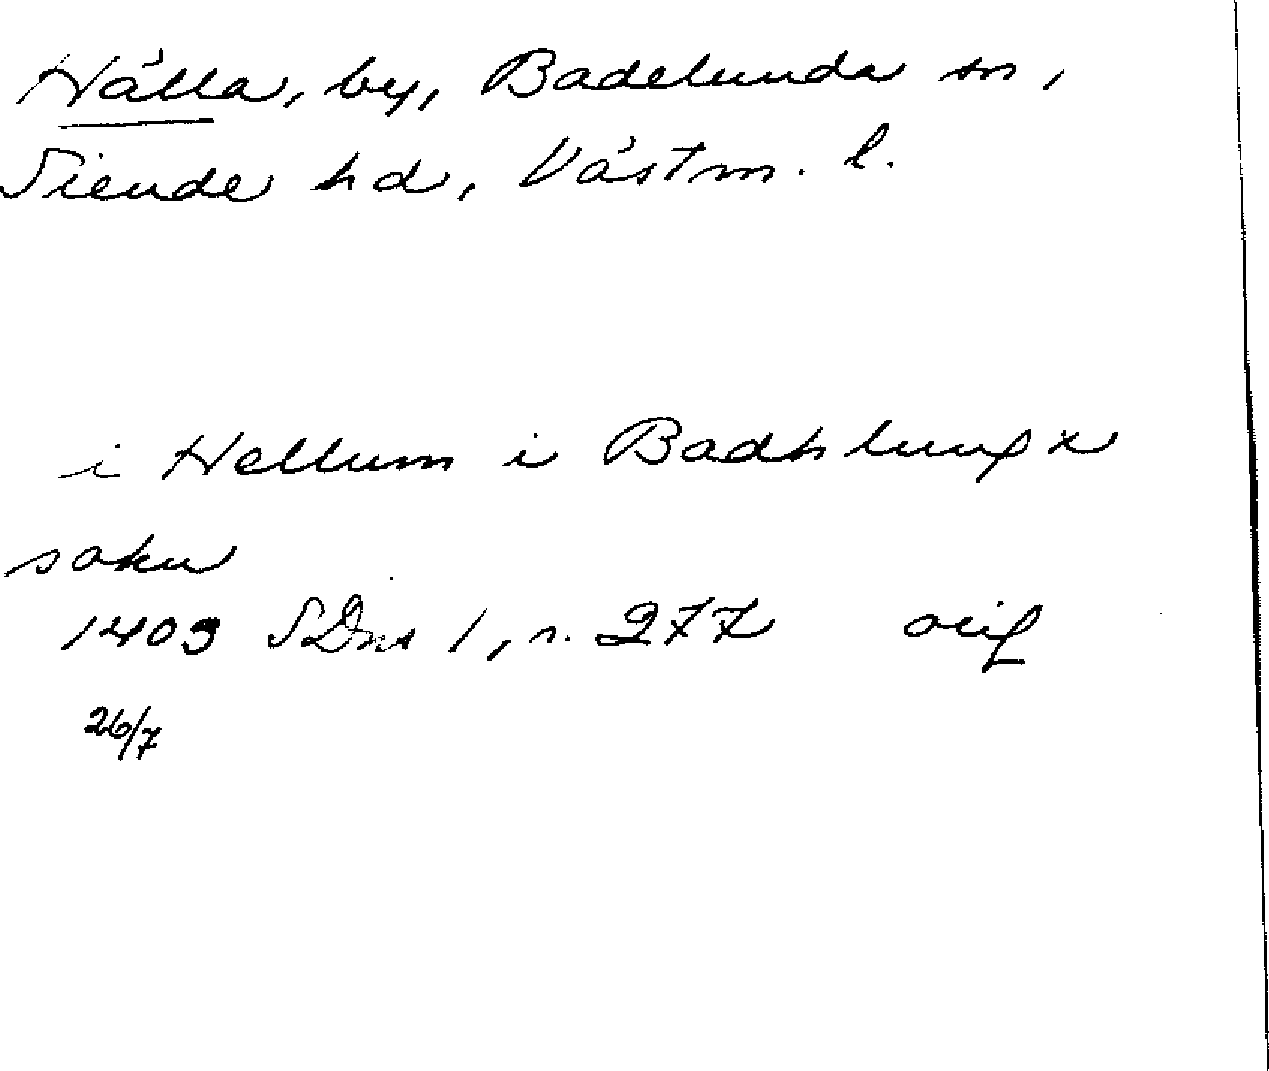 Hälla, by, Badelunda sn,
Siende hd, Västm. l.
i Hellum i Badhlungx
sokn
1403 SDns 1, n. 277 orig
26/7